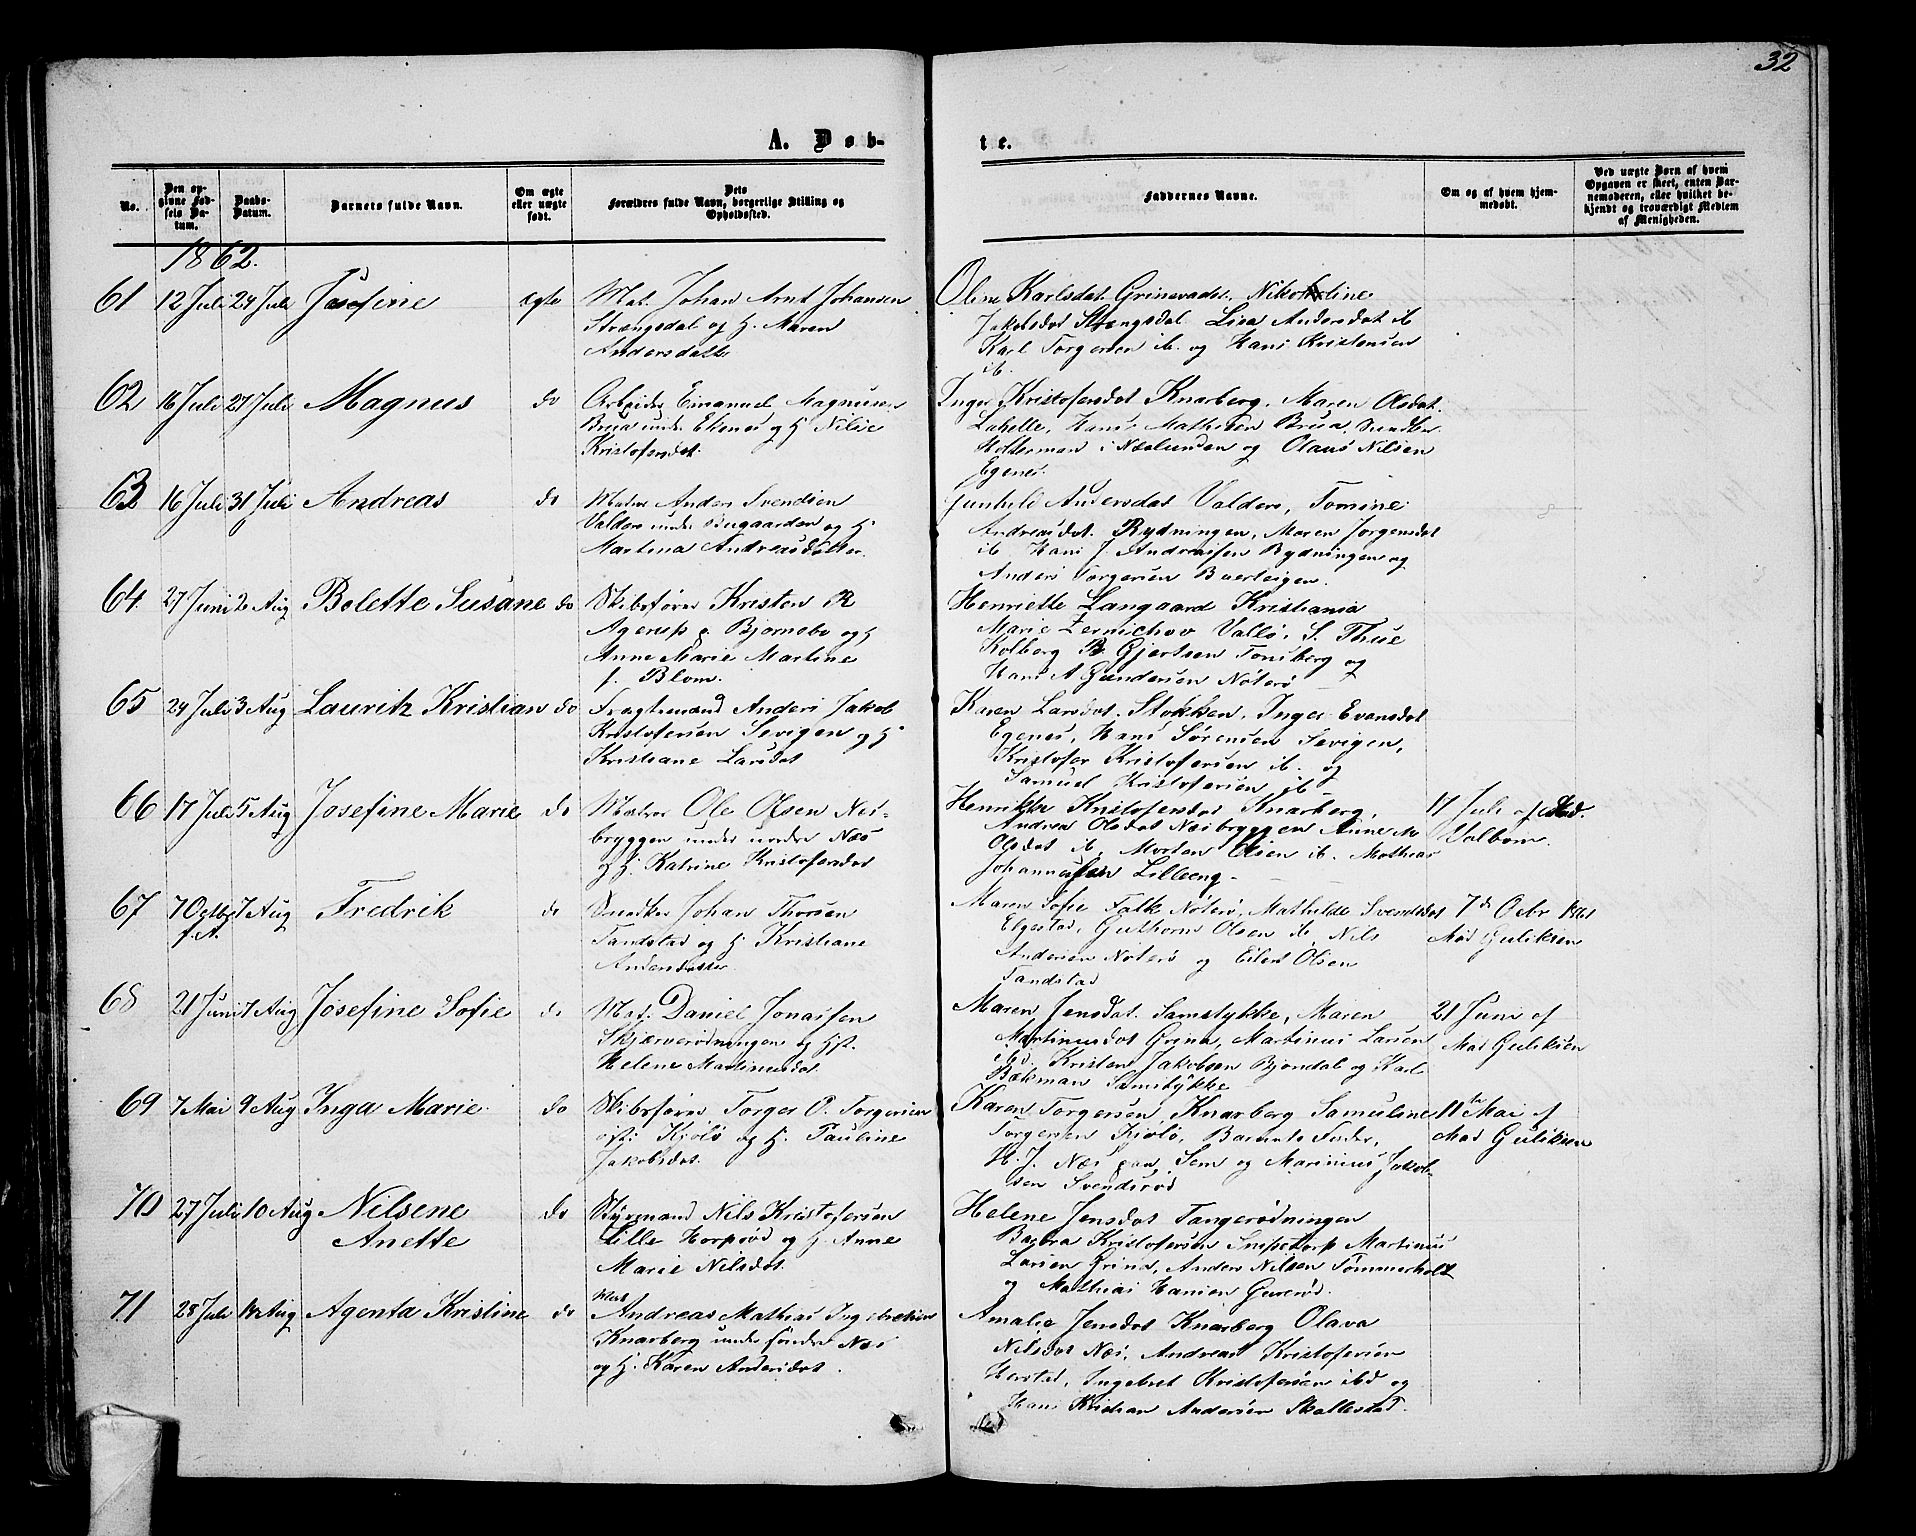 32
A. Døb-
te.
No.
Den op-
givne Fød-
sels Da-
tum.
Daabs-
Datum.
Barnets fulde Navn.
Om ægte
eller uægte
født.
Dets
Forældres fulde Navn, borgerlige Stilling og
Opholdsted.
Faddernes Navne.
Om og af hvem hjem-
medøbt.
Ved uægte Børn af hvem
Opgaven er skeet, enten Bar-
nemoderen, eller hvilket be-
kjendt og troværdigt Medlem
af Menigheden.
1862.
61 12 Juli 24 Juli Josefine ægte
Mat. Johan Arnt Johansen
Strængsdal og H. Maren
Andersdatte
Oline Karlsdat. Grinevadet. Nikoline
Jakobsdat Strengsdal Lisa Andersdat ib
Karl Torgersen ib. og Hans Kristensen
ib.
62 16 Juli 27 Juli Magnus do
Arbeider Emanuel Magnusen
Brua under Ekenes og H Nilsie
Kristofersdat.
Inger Kristofersdat Knarberg. Maren Olsdat.
Labelle, Hans Mathisen Brua,
Holterman i Næslunden og Olaus Nilsen
Egenes.
63 16 Juli 31 Juli Andreas do
Matros Anders Svendsen
Valders under Bugaarden og H
Martina Andreasdatter.
Gunhild Andersdat Valders, Tomine
Andreasdat. Rydningen, Maren Jorgensdat
ib. Hans J. Andreassen Rydningen og
Anders Torgersen Buerleigen.
64 27 Juni 2 Aug Bolette Susane do
Skibsfører Kristen R
Agersp p. Bjørnebo og H
Anne Marie Martine
f. Blom.
Henriette Langaard Kristiania
Marie Zernichow Vallø, S. Thue
Kolberg B Gjertsen Tonsberg og
Hans A Gundersen Nøterø
65 24 Juli 3 Aug Lauritz Kristian do
Fragtemand Anders Jakob
Kristofersen Sevigen og H
Kristiane Larsdat
Karen Larsdat. Stokken, Inger Evensdat
Egenes, Hans Sørensen Sevigen,
Kristofer Kristofersen ib. og
Samuel Kristofersen ib
66 17 Juli 5 Aug Josefine Marie do
Matros Ole Olsen Nes-
bryggen under nordre Næs
og H. Katrine Kristofersdat
Henrikke Kristofersdat Knarberg,
Andrea Olsdat Nesbryggen Anne M
Olsdat ib, Morten Olsen ib. Mathias
Johannessen Lilleeng
17 Juli af
Valbom.
67 7 Octbr f.A. 7 Aug Fredrik do
Snedker Johan Thorsen
Tandstad og H. Kristiane
Andersdatter
Maren Sofie Falk Nøterø, Mathilde Svendsdat
Elgestad, Guthorm Olsen ib, Nils
Andersen Nøterø og Eilert Olsen
Tandstad
7de Octr 1861
Mad Guliksen
68 21 Juni 7 Aug Josefine Sofie do
Mat. Daniel Jonassen
Skjærverødningen og Hst.
Helene Martinusdat.
Maren Jensdat. Samstykke, Maren
Martinusdat Grina, Martinus Larsen
ibd. Kristen Jakobsen Bjondal og Karl
Bækman Samstykke
21 Juni af
Mad Guliksen
69 7 Mai 9 Aug Inga Marie do
Skibsfører Torger O. Torgersen
Kjølø og H. Pauline
Jakobsdat.
Karen Torgersen, Knarberg Samuline
Torgersen Kjølø, Barnets Fader,
H. J. Næs paa Sem og Marinius Jakob-
sen Svendsrød
11te Mai af
Mad Guliksen
70 27 Juli 10 Aug Nilsene
Anette do
Styrmand Nils Kristofersen
Lille Horperød og H. Anne
Marie Nilsdat.
Helene Jensdat Tangerødningen
Barbra Kristofersen Snipetorp Martinus
Larsen Grina, Anders Nilsen Tommerholt
og Mathias Hansen Guserød.
71 28 Juli 12 Aug Agenta Kristine do
Matr
Andreas Mathias Ingebretsen
Knarberg under søndre Næs
og H. Karen Andersdat.
Amalie Jensdat Knarberg Olava
Nilsdat Næs, Andreas Kristofersen
Herstad, Ingebret Kristofersen ibd og
Hans Kristian Andersen Skallestad.